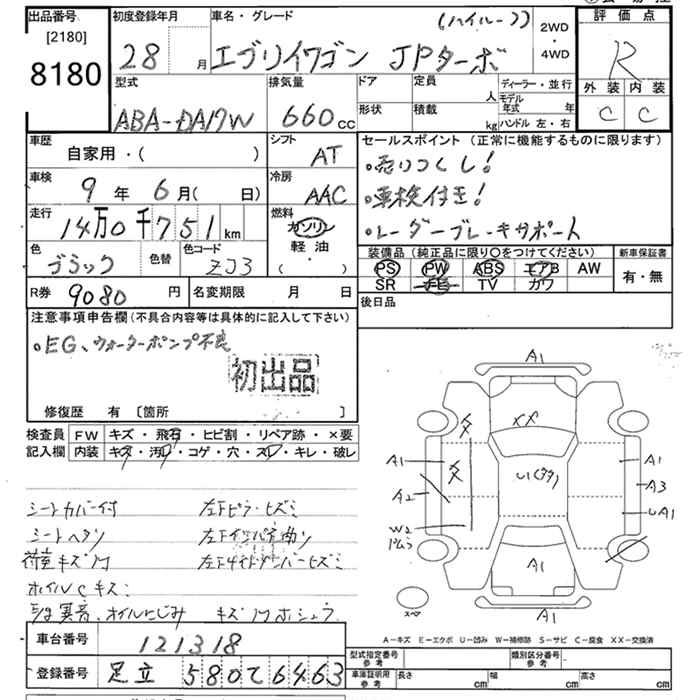 出品番号
[2180]
8180
初度登録年月
28 月
車名・グレード
(ハイルーフ)
エブリイワゴン JPターボ
2WD
・
4WD
評価点
R
外装 内装
C C
型式
ABA-DA17W
排気量
660 cc
ドア
形状
定員
人
積載
kg
ディーラー・並行
モデル年式 年
ハンドル 左・右
車歴
自家用・( )
シフト
AT
車検
9 年 6 月 ( 日)
冷房
AAC
走行
14万0千751 km
燃料
ガソリン
軽油
( )
色
ブラック
色替
色コード
ZJ3
セールスポイント (正常に機能するものに限ります)
・売りつくし!
・車検付き!
・レーダーブレーキサポート
装備品 (純正品に限り〇をつけてください)
PS PW ABS エアB AW
SR ナビ TV カワ
新車保証書
有・無
R券 9080 円
名変期限 月 日
後日品
注意事項申告欄 (不具合内容等は具体的に記入して下さい)
・EG、ウォーターポンプ不良
初出品
修復歴 有 〔箇所 〕
検査員記入欄
FW キズ・飛石・ヒビ割・リペア跡・×要
内装 キズ・汚れ・コゲ・穴・スレ・キレ・破レ
シートカバー付
左下ピラーヒズミ
シートヘタリ
荷室キズ
ホイルCキズ
オイルにじみ
A1
XX
A1
A2
W2
U1(タタ)
A1
A3
UA1
A1
A1
スペア
A-キズ E-エクボ U-凹み W-補修跡 S-サビ C-腐食 XX-交換済
車台番号
121318
登録番号
足立 580て6463
型式指定番号
参考
類別区分番号
参考
車庫証明用
参考
長さ cm
幅 cm
高さ cm